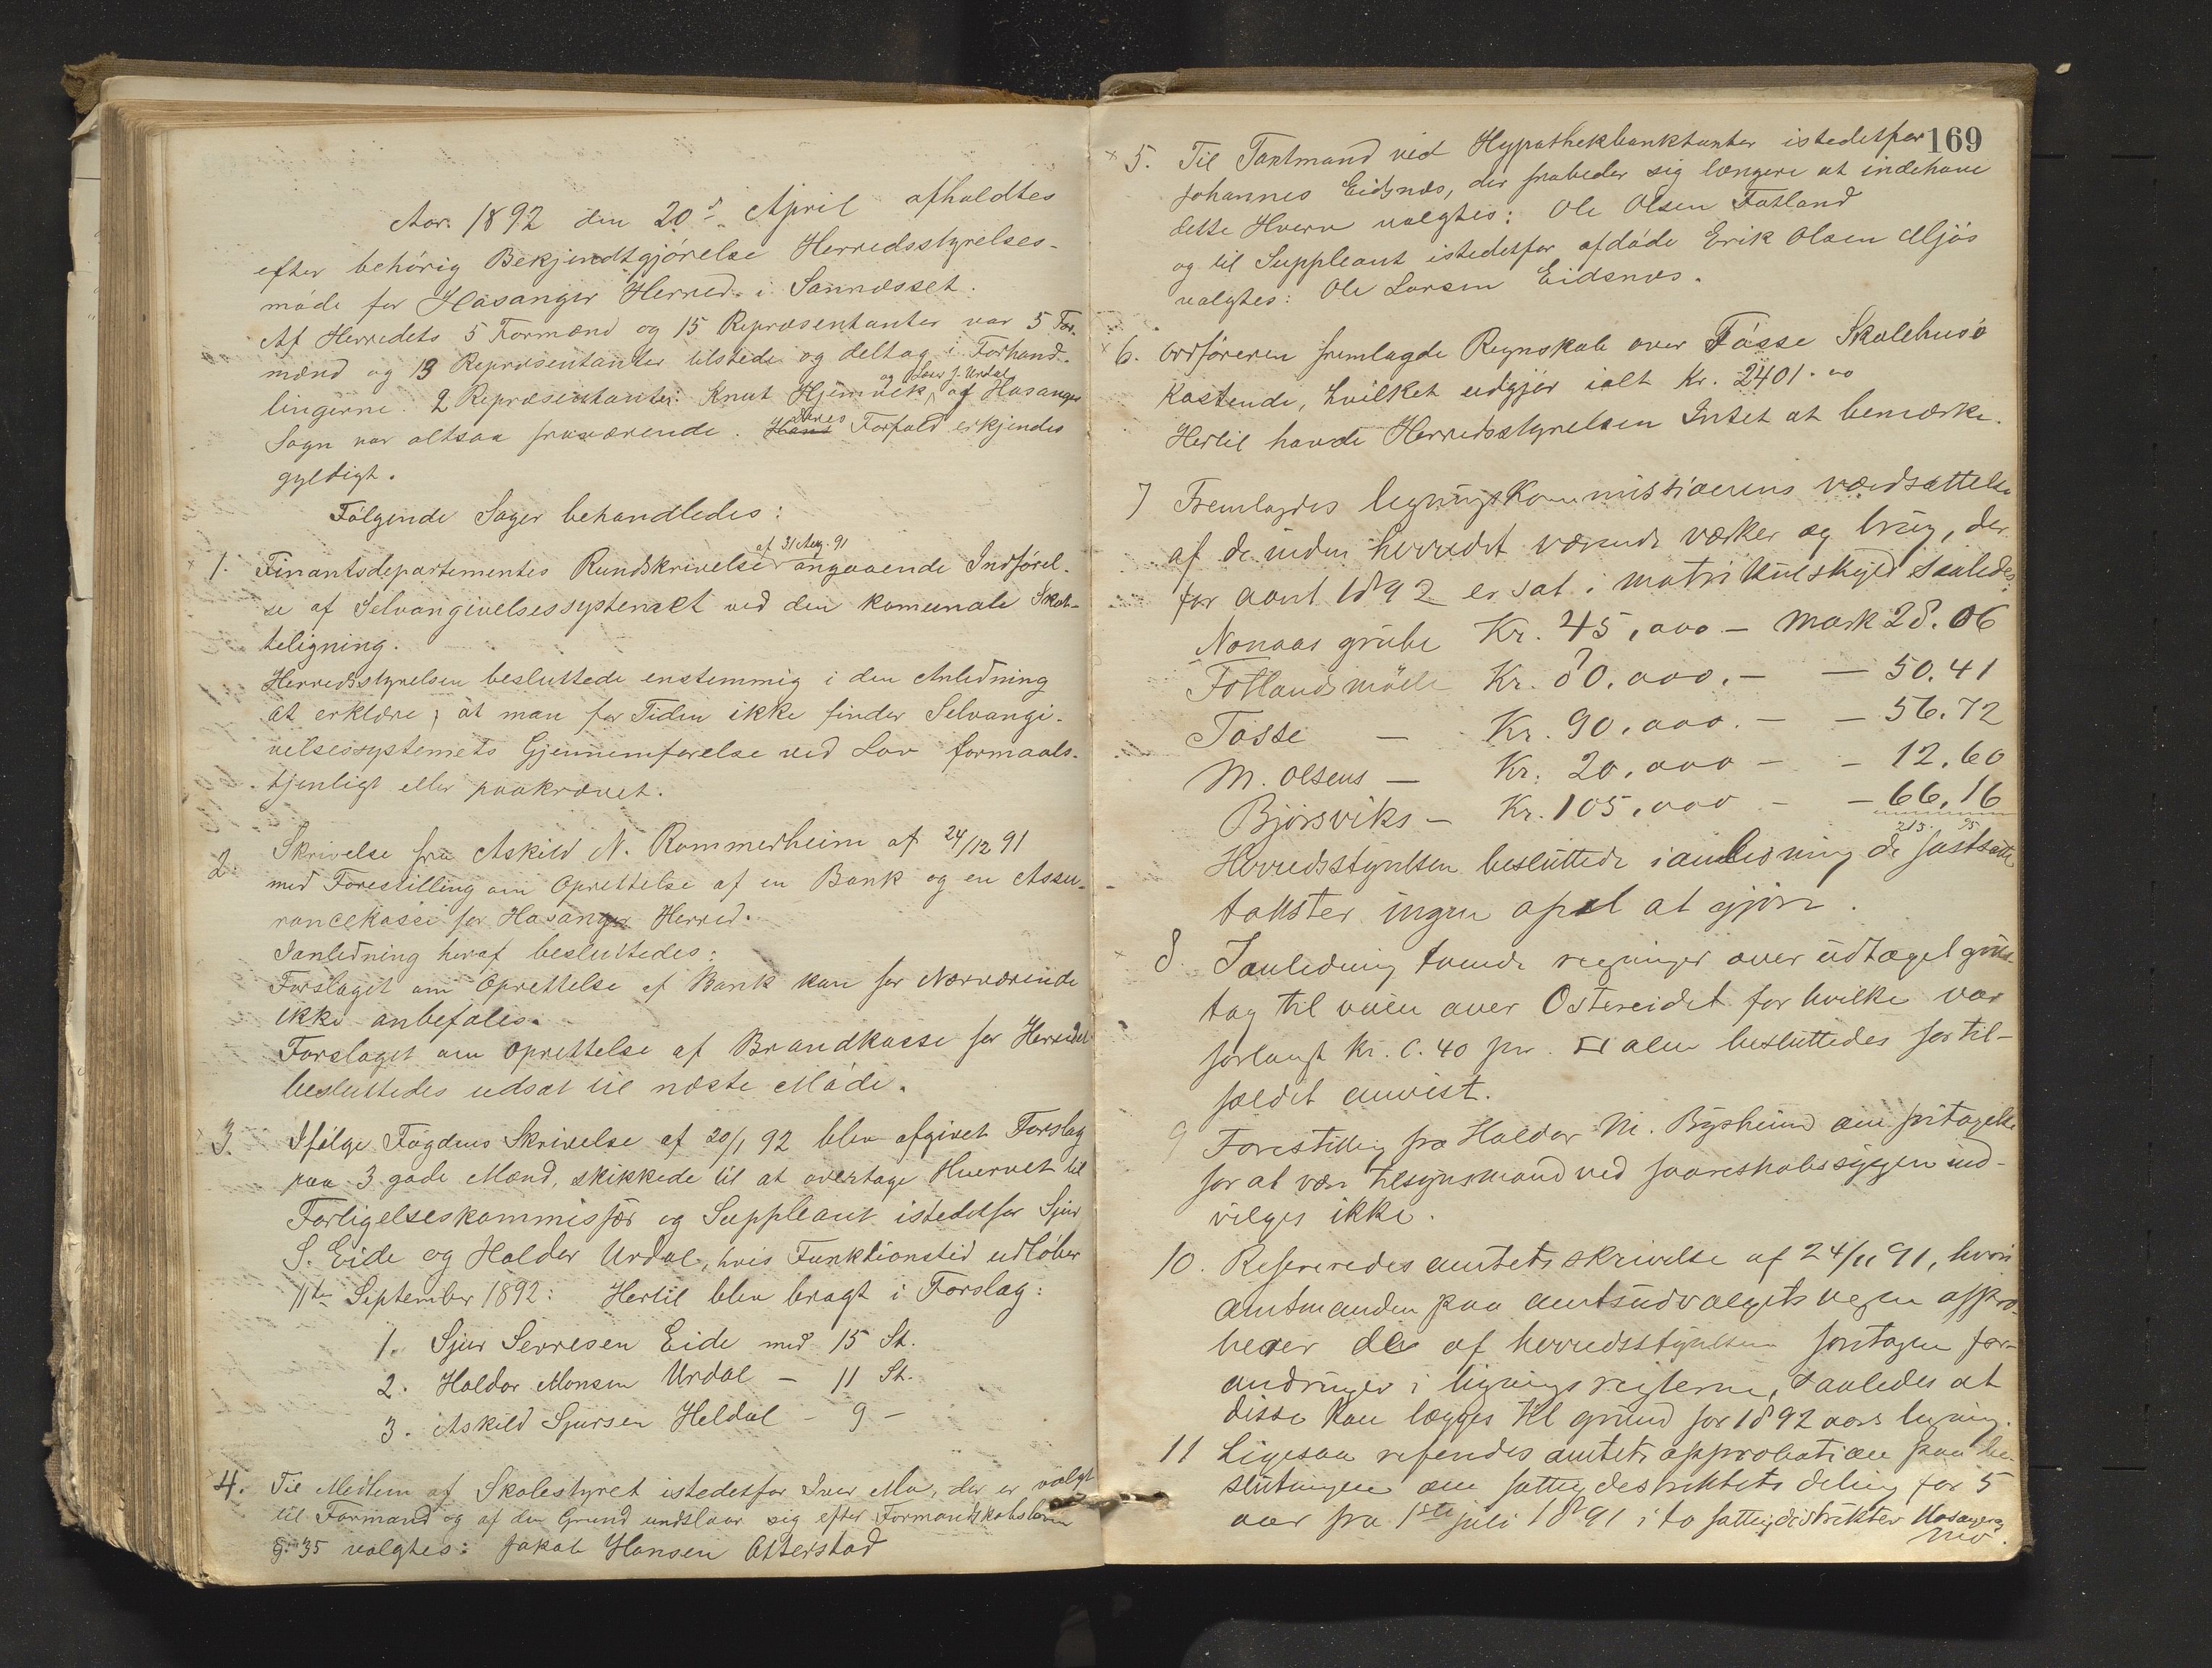 Aar 1892 den 20de April afholdtes
efter behörig Bekjendtgjörelse Herredsstyrelses-
möde for Hosanger Herred i Sannesset.
Af Herredets 5 Formænd og 15 Repræsentanter var 5 For-
mænd og 13 Repræsentanter tilstede og deltog i Forhand-
lingerne. 2 Repræsentanter: Knut Hjemvik og Lars J. Urdal af Hosanger
Sogn var altsaa fraværende. Hans Deres Forfald erkjendes
gyldigt.
Fölgende Sager behandledes:
1. Finantsdepartementes Rundskrivelse af 31 Aug. 91 angaaende Indförel-
se af Selvangivelsessystemet ved den komunale Skat-
teligning.
Herredsstyrelsen besluttede enstemmig i den Anledning
at erklære, at man for Tiden ikke finder Selvangi-
velsessystemets Gjennemförelse ved Lov formaals-
tjenligt eller paakrævet.
2. Skrivelse fra Askild N. Rommerheim af 24/12 91
med Forestilling om Oprettelse af en Bank og en Assu-
rancekasse for Hosanger Herred.
Ianledning heraf besluttedes:
Forslaget om Oprettelse af Bank kan for Nærværende
ikke anbefales.
Forslaget om Oprettelse af Brandkasse for Herredet
besluttedes udsat til næste Möde.
3. Ifölge Fogdens Skrivelse af 20/1 92 blev afgivet Forslag
paa 3 gode Mænd, skikkede til at overtage Hvervet til
Forligelseskommissær og Suppleant istedetfor Sjur
S. Eide og Haldor Urdal, hvis Funktionstid udlöber
11te September 1892: Hertil blev bragt i Forslag:
1. Sjur Serresen Eide med 15 St.
2. Haldor Monsen Urdal – 11 St.
3. Askild Sjursen Heldal – 9 –
4. Til Medlem af Skolestyret istedetfor Iver Mo, der er valgt
til Formand og af den Grund undslaar sig efter Formandskabsloven
§ 35 valgtes: Jakob Hansen Otterstad
169
5. Til Taxtmand ved Hypothekbanktaxter istedetfor
Johannes Eidsnæs, der frabeder sig længere at indehave
dette Hverv valgtes: Ole Olsen Fotland
og til Suppleant istedetfor afdöde Erik Olsen Mjös
valgtes: Ole Larsen Eidsnæs.
6. Ordföreren fremlagde Regnskab over Fösse Skolehus's
Kostende, hvilket udgjör ialt Kr. 2401.00
Hertil havde Herredsstyrelsen Intet at bemærke.
7 Fremlagdes legningskommissionens værdsættelse
af de inden herredet værende værker og brug, der
for aaret 1892 er sat i matrikulskyld saaledes:
Nonaas grube Kr. 45,000 – Mark 28.06
Fotlandsmölle Kr. 80.000. – – 50.41
Fosse – Kr. 90.000. – – 56.72
M. Olsens – Kr. 20,000 – – 12.60
Bjørsviks – Kr. 105,000 – – 66,16
213. 95
Herredsstyrelsen besluttede i anledning de fastsatte
takster ingen apel at gjøre.
8. Ianledning tvende regninger over udtaget grus-
tag til veien over Ostereidet for hvilke var
forlangt Kr. 0.40 pr. □ alen besluttedes for til-
fældet anvist.
9 Forestilling fra Haldor M. Bysheim om fritagelse
for at være tilsynsmand ved faareskabssygen ind-
vilges ikke.
10. Refereredes amtets skrivelse af 24/11 91, hvori
amtmanden paa amtsudvalgets vegne appro-
berer de af herredsstyrelsen foretagne for-
andringer i ligningsreglerne, saaledes at
disse kan lægges til grund for 1892 aars ligning.
11 Ligesaa referedes amtets approbation paa be-
slutningen om fattigdestriktets deling for 5
aar fra 1ste juli 1891 i to fattigdistrikter Hosanger og
Mo.